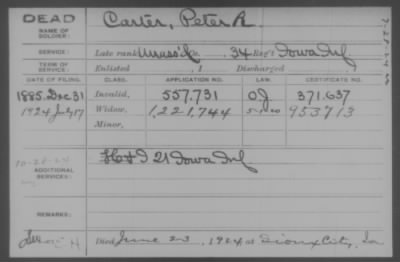 DEAD
NAME OF SOLDIER: Carter, Peter R.
SERVICE: Late rank Unass'd Co. , 34 Reg't Iowa Inf
TERM OF SERVICE: Enlisted , 1 Discharged , 1
DATE OF FILING. CLASS. APPLICATION NO. LAW. CERTIFICATE NO.
1885, Dec 31 Invalid, 557.731 OJ 371.637
1924 July 17 Widow, 1,221,744 953713
Minor,
ADDITIONAL SERVICES: H & I 21 Iowa Inf
REMARKS:
Died June 23, 1924, at Sioux City, Ia